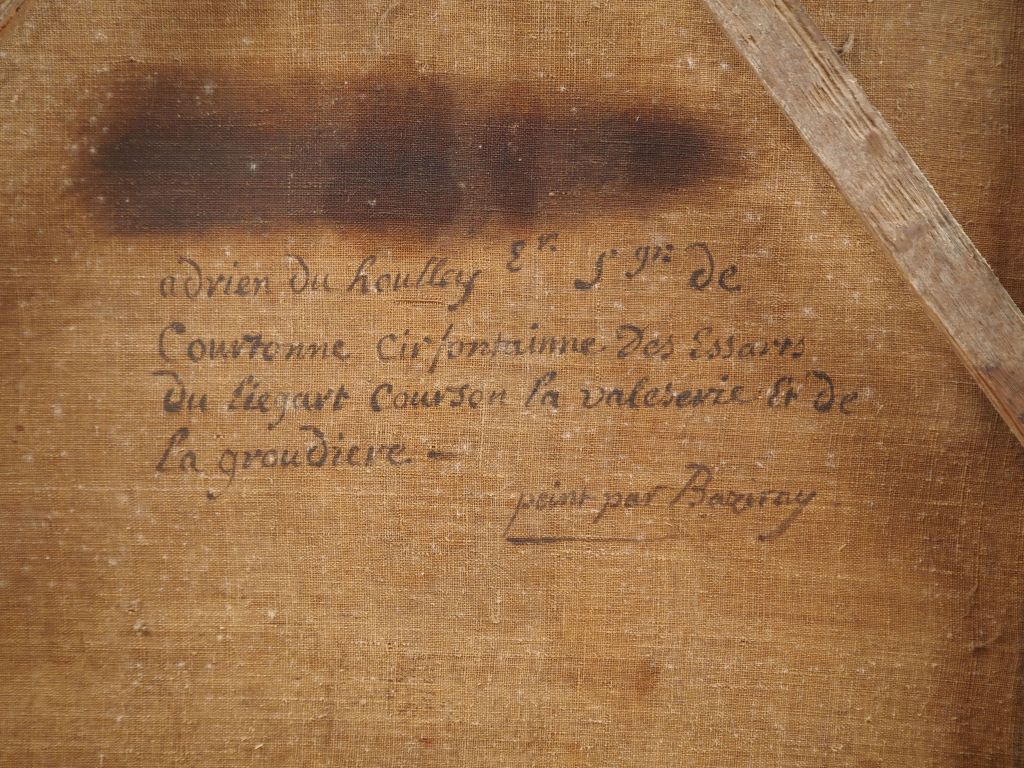 adrien du houlley Er Sgr de
Courtonne Cirfontainne Des Essarts
Du liegart Courson la valeserie Et de
la groudiere -
peint par Baziray